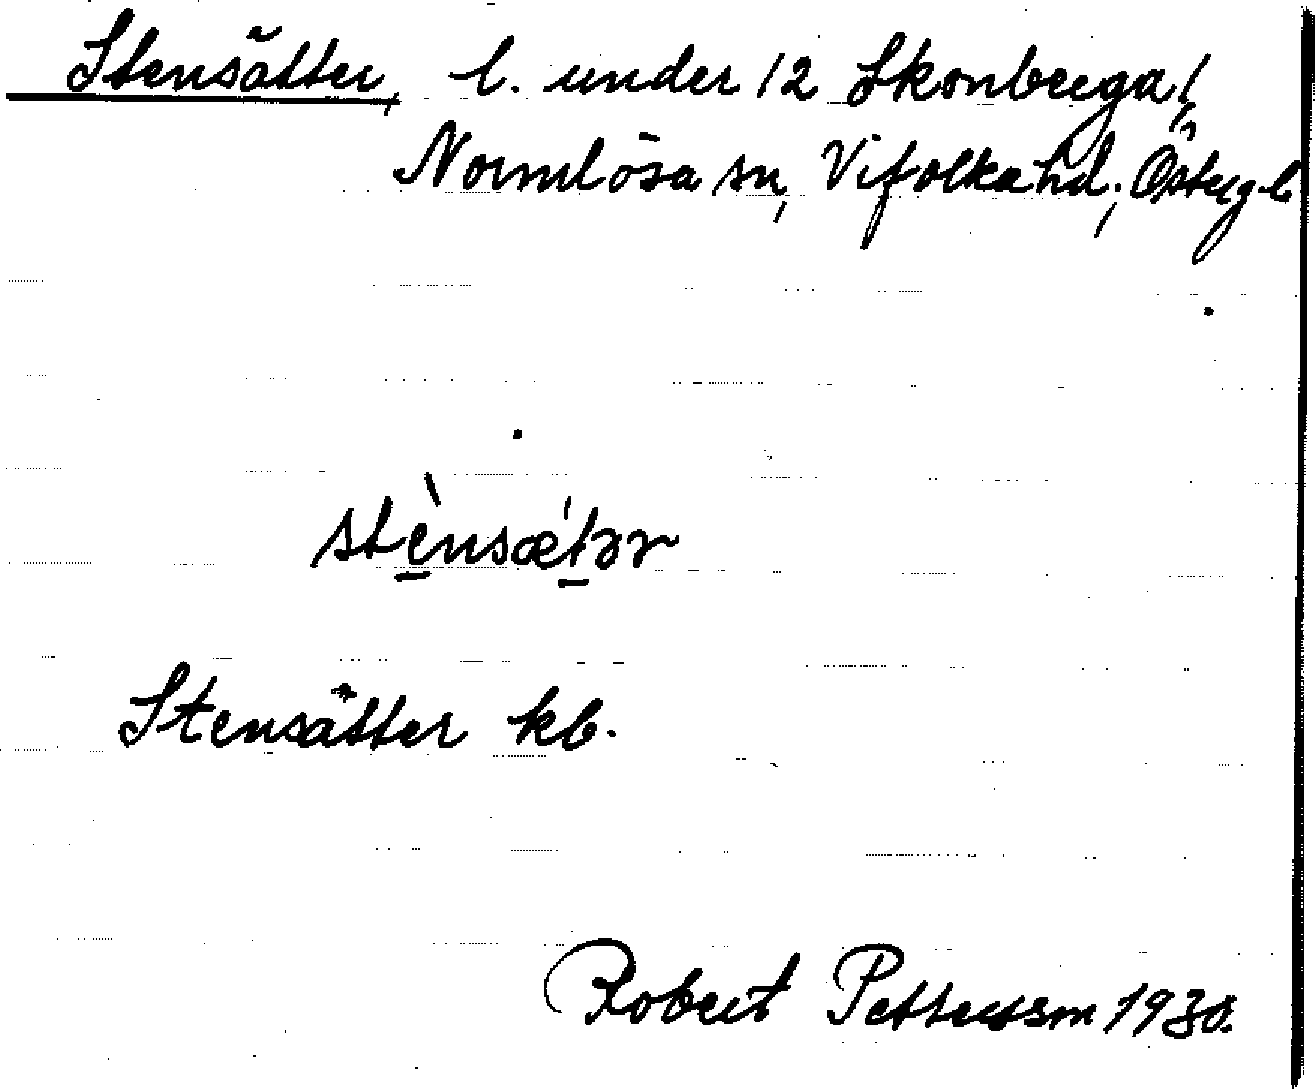 Stensätter, l. under 12 Skonberga,
Normlösa sn, Vifolka hd, Östergl
stènsæ̀tər
Stensätter kb.
Robert Pettersson 1930.